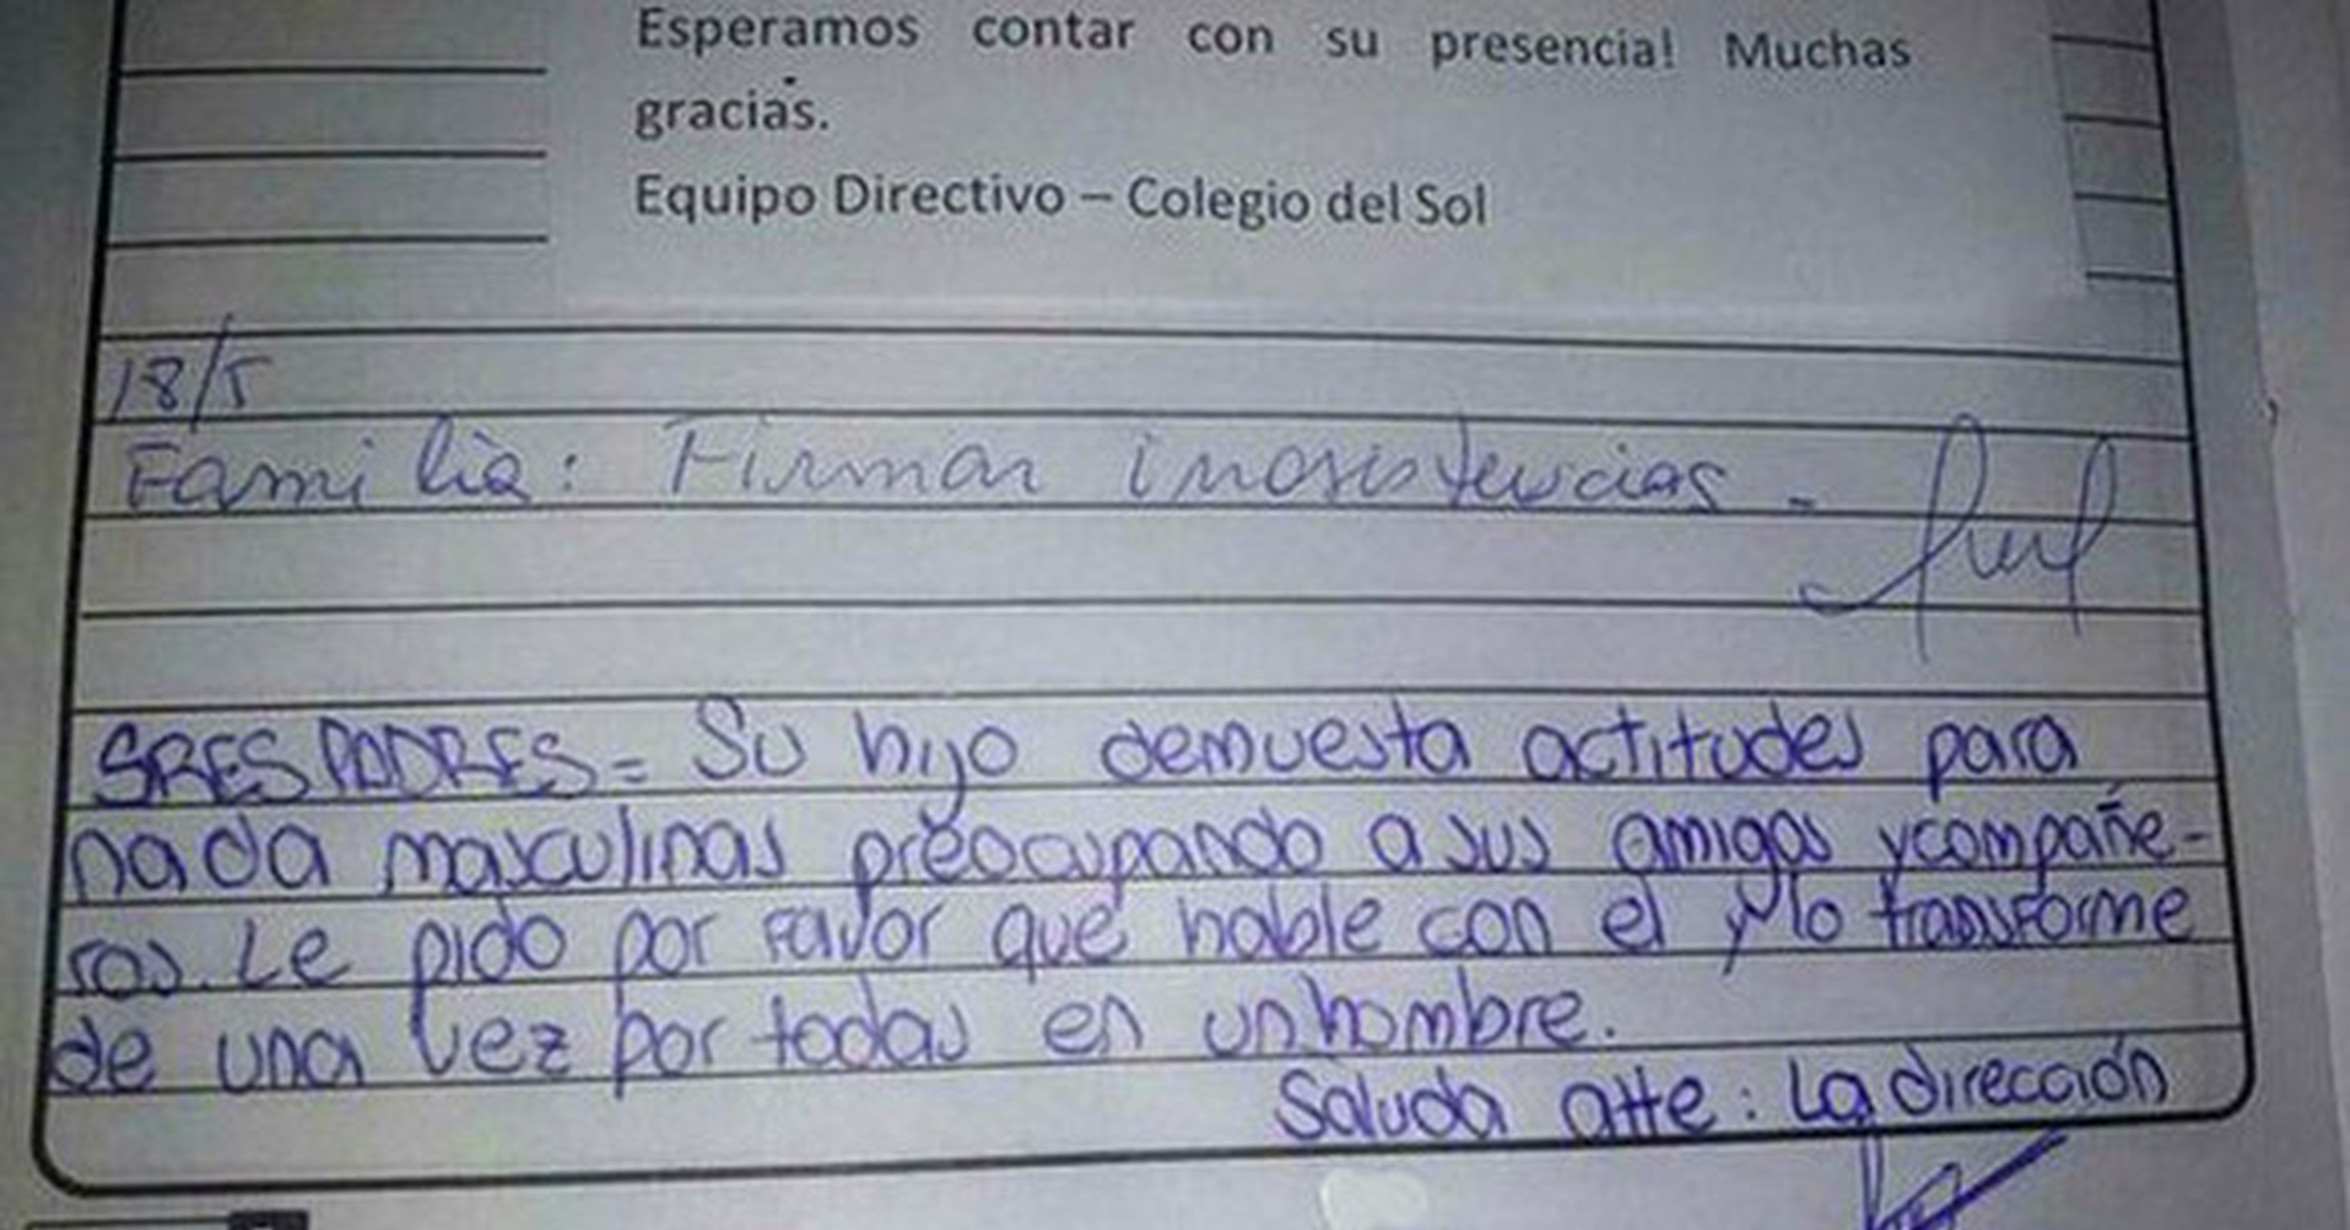 Esperamos contar con su presencia! Muchas
gracias.
Equipo Directivo – Colegio del Sol
18/5
Familia: Firmar inasistencias -
SRES PADRES = Su hijo demuesta actitudes para
nada masculinas preocupando a sus amigos y compañe-
ros. Le pido por favor que hable con el y lo transforme
de una vez por todas en un hombre.
Saluda atte: La dirección